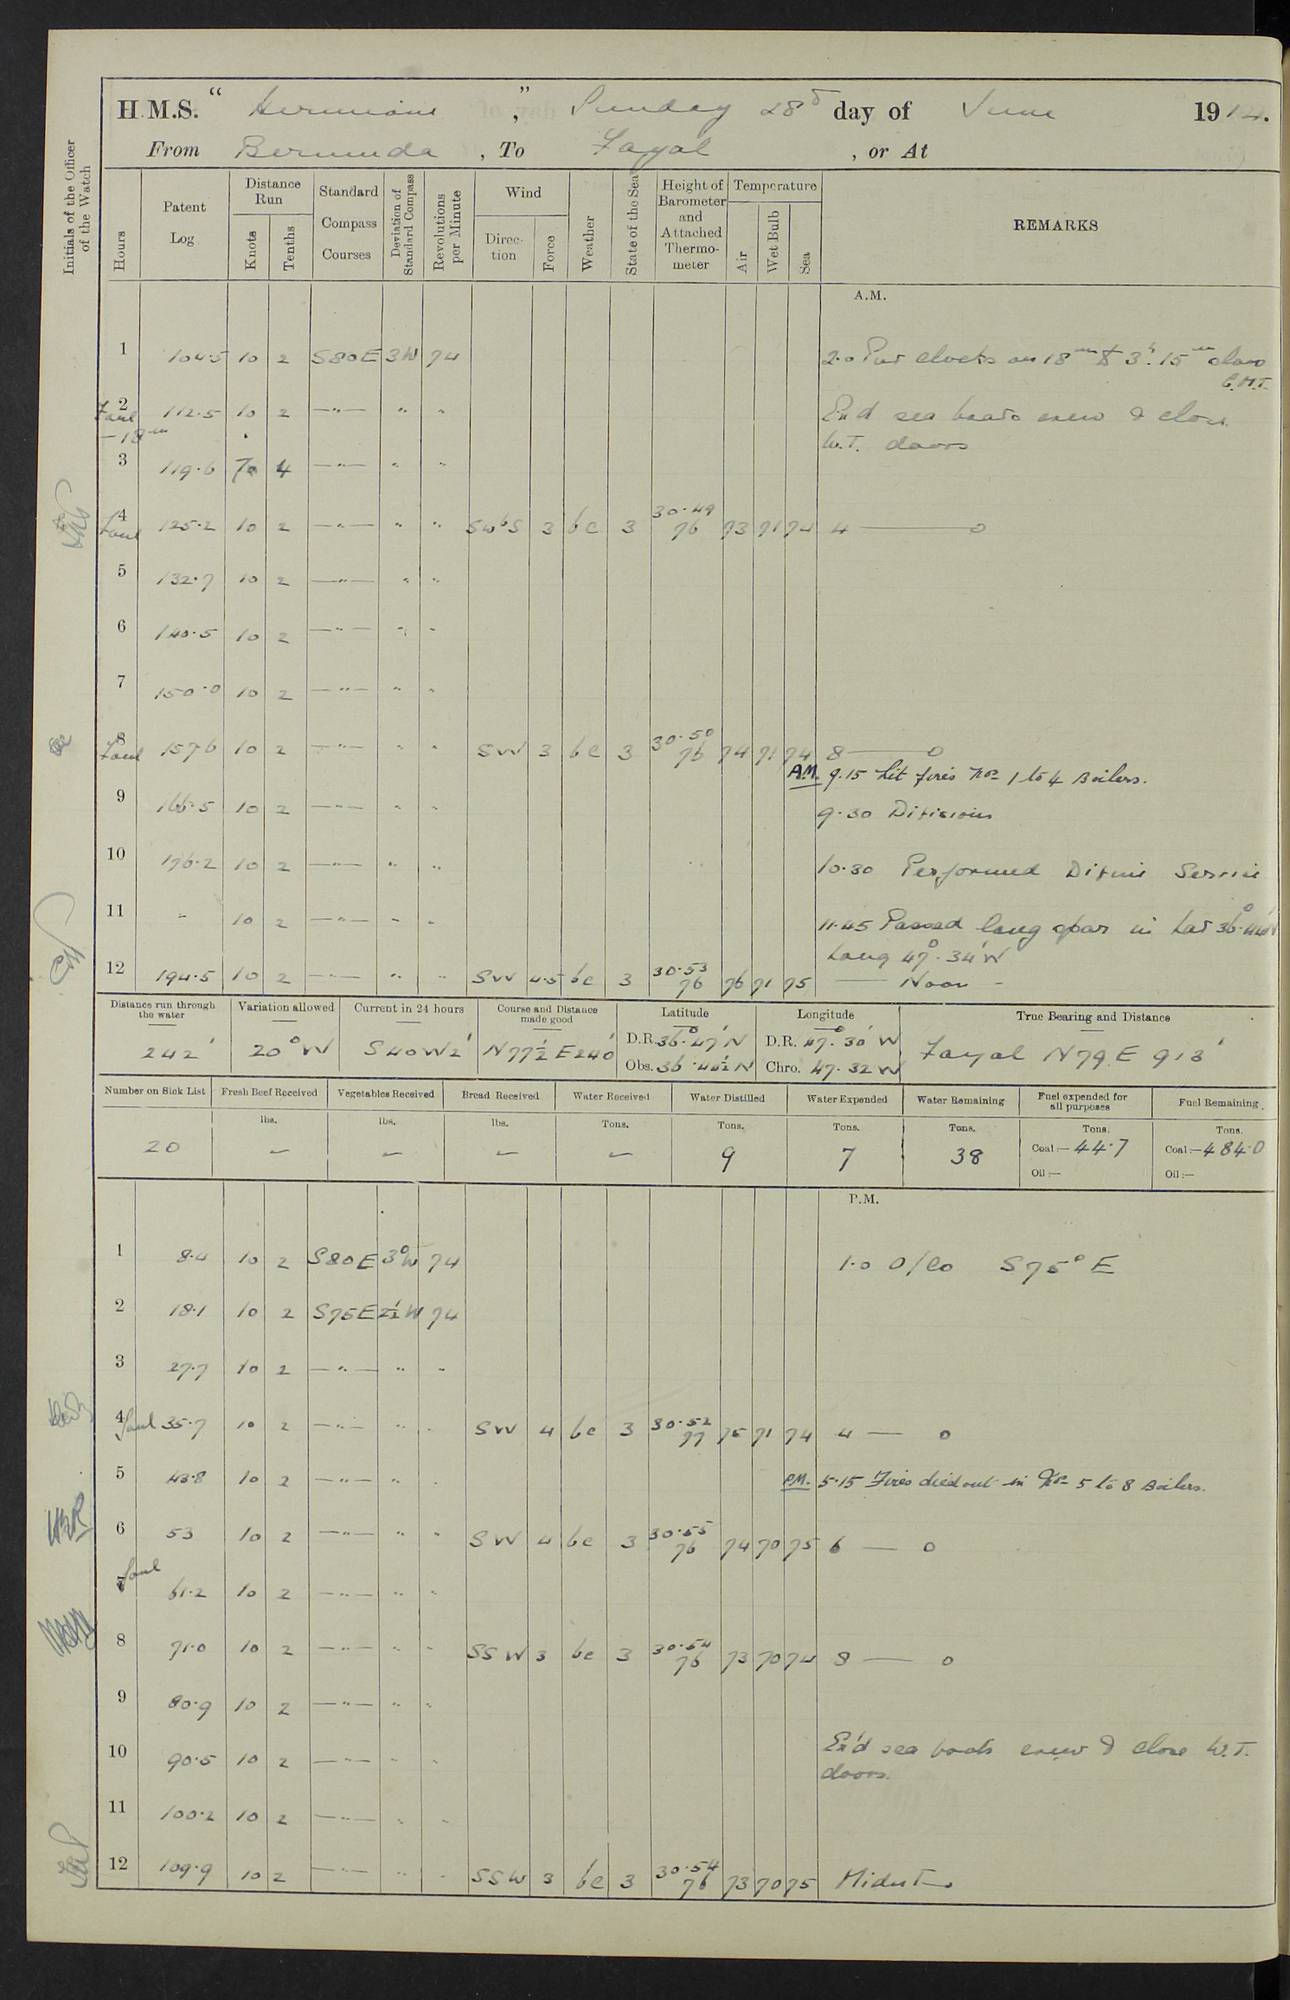 H.M.S. " Hermione ", Sunday 28th day of June 1914.
From Bermuda , To Fayal , or At
Initials of the Officer of the Watch
Hours
Patent Log
Distance Run
Knots
Tenths
Standard Compass Courses
Deviation of Standard Compass
Revolutions per Minute
Wind
Direction
Force
Weather
State of the Sea
Height of Barometer and Attached Thermometer
Temperature
Air
Wet Bulb
Sea
REMARKS
A.M.
1 104.5 10 2 S80E 3W 74 2.0 Put clocks on 18m & 3h.15m slow G.M.T.
2 Foul 112.5 10 2 —"— " " Ex'd sea boats crew & close
—18m W.T. doors
3 119.6 7 4 —"— " "
4 Foul 125.2 10 2 —"— " " SWbS 3 bc 3 30.49 76 73 71 74 4 —— o
5 132.7 10 2 —"— " "
6 140.5 10 2 —"— " "
7 150.0 10 2 —"— " "
8 Foul 157.6 10 2 —"— " " SW 3 bc 3 30.50 76 74 71 74 8 —— o
A.M. 9.15 Lit fires Nos 1 to 4 Boilers.
9 166.5 10 2 —"— " " 9.30 Divisions
10 176.2 10 2 —"— " " 10.30 Performed Divine Service
11 - 10 2 —"— " " 11.45 Passed long spar in Lat 36°.44'N
Long 47°.34'W
12 194.5 10 2 —"— " " SW 4.5 bc 3 30.53 76 76 71 75 — Noon -
Distance run through the water
242'
Variation allowed
20°W
Current in 24 hours
S40W2'
Course and Distance made good
N77½E 240'
Latitude
D.R. 36°.47'N
Obs. 36.44½N
Longitude
D.R. 47°.30'W
Chro. 47.32W
True Bearing and Distance
Fayal N79E 913'
Number on Sick List
20
Fresh Beef Received
lbs.
Vegetables Received
lbs.
Bread Received
lbs.
Water Received
Tons.
Water Distilled
Tons.
9
Water Expended
Tons.
7
Water Remaining
Tons.
38
Fuel expended for all purposes
Tons.
Coal:— 44.7
Oil:—
Fuel Remaining.
Tons.
Coal:— 484.0
Oil:—
P.M.
1 8.4 10 2 S80E 3°W 74 1.0 A/Co S75°E
2 18.1 10 2 S75E 2½W 74
3 27.7 10 2 —"— " "
4 Foul 35.7 10 2 —"— " " SW 4 bc 3 30.52 77 75 71 74 4 — o
5 43.8 10 2 —"— " " P.M. 5.15 Fires died out in Nos 5 to 8 Boilers.
6 53 10 2 —"— " " SW 4 bc 3 30.55 76 74 70 75 6 — o
7 Foul 61.2 10 2 —"— " "
8 71.0 10 2 —"— " " SSW 3 bc 3 30.54 76 73 70 74 8 — o
9 80.9 10 2 —"— " "
10 90.5 10 2 —"— " " Ex'd sea boats crew & close W.T.
doors.
11 100.2 10 2 —"— " "
12 109.9 10 2 —"— " " SSW 3 bc 3 30.54 76 73 70 75 Midnt